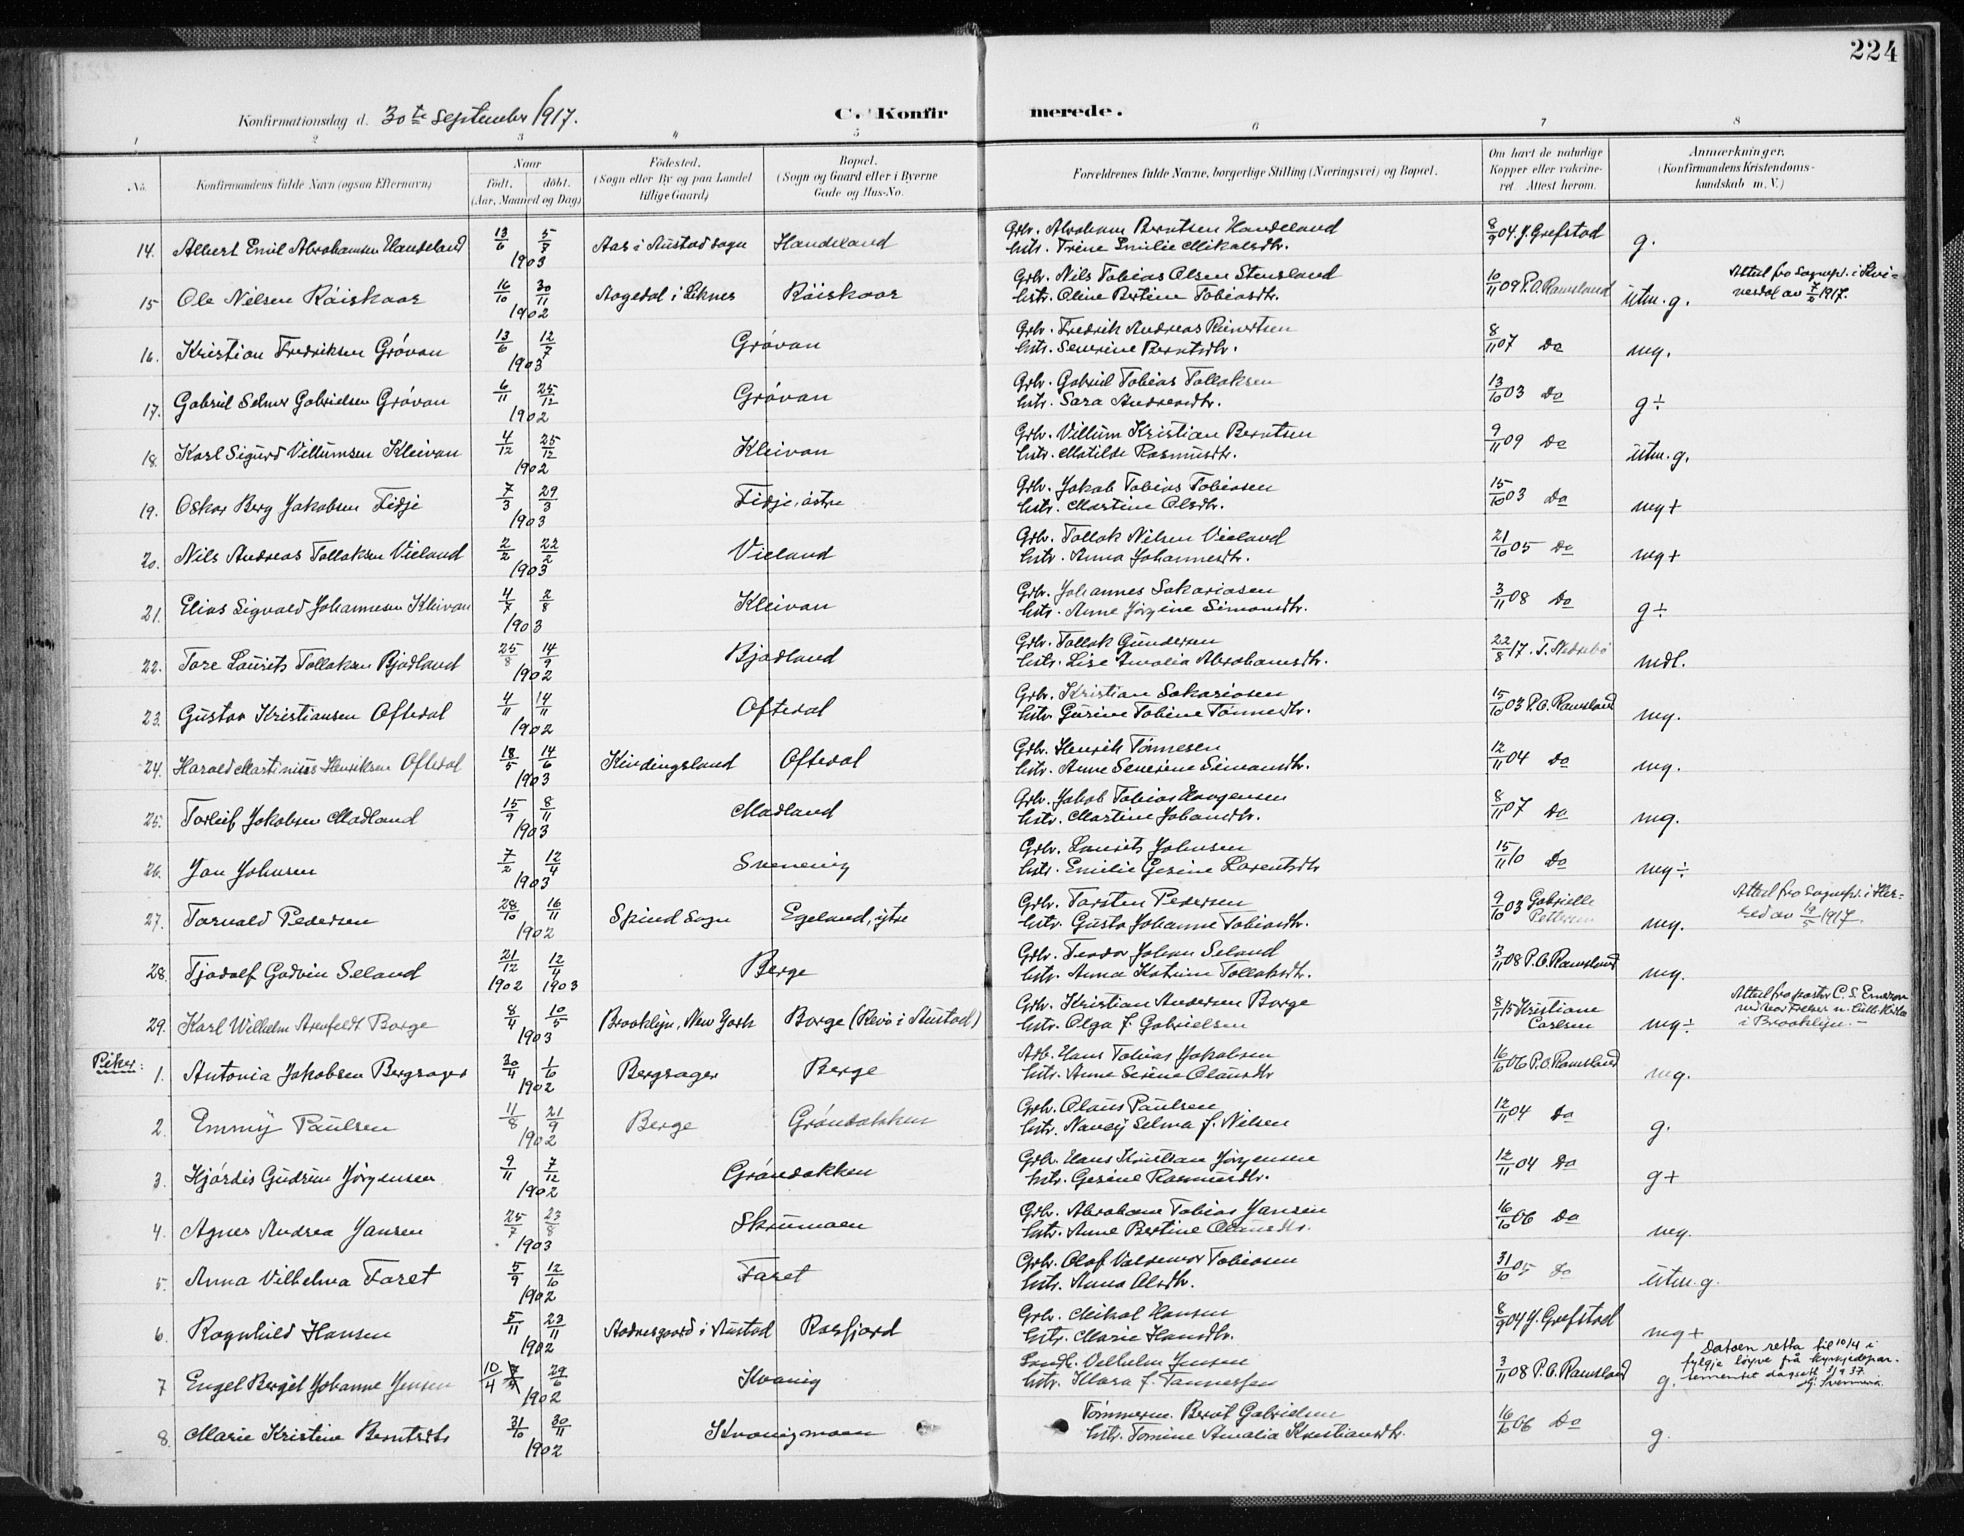 224
Konfirmationsdag d. 30te September 1917.
C. Konfirmerede.
1 2 3 4 5 6 7 8
No.
Konfirmandens fulde Navn (ogsaa Efternavn)
Naar
født. døbt.
(Aar, Maaned og Dag)
Fødested.
(Sogn eller By og paa Landet tillige Gaard)
Bopæl.
(Sogn og Gaard eller i Byerne Gade og Hus-No.
Forældrenes fulde Navne, borgerlige Stilling (Næringsvei) og Bopæl.
Om havt de naturlige Kopper eller vakcineret Attest herom.
Anmærkninger.
(Konfirmandens Kristendomskundskab m. V.)
14. Albert Emil Abrahamsen Handeland 13/6 5/7 1903 Aas i Austad sogn Handeland Grbr. Abraham Berntsen Handeland 8/9 04 J. Grefstad g.
hstr. Trine Emilie Mikalsdtr.
15 Ole Nielsen Röiskaar 16/10 30/11 1902 Aagedal i Liknes Röiskaar Grbr. Nils Tobias Olsen Stensland 10/11 09 P.O. Ramsland utm. g. Attest fra Sognepr. i Kvi-
hstr. Oline Bertine Tobiasdtr. nesdal av 7/5 1917.
16. Kristian Fredriksen Grövan 13/6 12/7 1903 Grövan Grbr. Fredrik Andreas Reinertsen 8/11 07 Do mg.
hstr. Severine Berntsdtr.
17. Gabriel Selmer Gabrielsen Grövan 6/11 25/12 1902 Grövan Grbr. Gabriel Tobias Tollaksen 13/10 03 Do g ÷
hstr. Sara Andreasdtr.
18. Karl Sigurd Villumsen Kleivan 4/12 25/12 1902 Kleivan Grbr. Villum Kristian Berntsen 9/11 09 Do utm. g.
hstr. Matilde Rasmusdtr.
19. Oskar Berg Jakobsen Fidje 7/3 29/3 1903 Fidje, östre Grbr. Jakob Tobias Tobiasen 15/10 03 Do mg +
hstr. Martine Olsdtr.
20. Nils Andreas Tollaksen Vieland 2/2 22/2 1903 Vieland Grbr. Tollak Nilsen Vieland 21/10 05 Do mg +
hstr. Anna Johannesdtr.
21. Elias Sigvald Johannesen Kleivan 4/7 2/8 1903 Kleivan Grbr. Johannes Sakariasen 3/11 08 Do g ÷
hstr. Anne Jörgine Simonsdtr.
22. Tore Laurits Tollaksen Bjodland 25/8 14/9 1902 Bjodland Grbr. Tollak Gundersen 22/8 17. mdl.
hstr. Lise Amalia Abrahamsdtr.
23. Gustav Kristiansen Oftedal 4/11 14/11 1902 Oftedal Grbr. Kristian Sakariasen 15/10 03 P.O. Ramsland mg.
hstr. Gurine Tobine Tönnesdtr.
24. Harald Martinius Henriksen Oftedal 18/5 14/6 1903 Kindingsland Oftedal Grbr. Henrik Tönnesen 12/11 04 Do mg.
hstr. Anne Severine Simonsdtr.
25. Torleif Jakobsen Madland 15/9 8/11 1903 Madland Grbr. Jakob Tobias Haagensen 8/11 07 Do mg.
hstr. Martine Johansdtr.
26. Jan Johnsen 7/2 12/4 1903 Svenevig Grbr. Laurits Johnsen 15/11 10 Do mg ÷
hstr. Emilie Gesine Lorentsdtr
27. Torvald Pedersen 28/10 16/11 1902 Spind Sogn Egeland, ytre Grbr. Torsten Pedersen 9/10 03 Gabrielle mg. Attest fra Sognepr. i Her-
hstr. Gusta Johanne Tobiasdtr. red av 19/5 1917.
28. Tjodolf Godvin Seland 21/12 1902 12/4 1903 Berge Grbr. Teodor Johan Seland 3/11 08 P.O. Ramsland mg.
hstr. Anna Katrine Tollaksdtr.
29. Karl Wilhelm Arnfeldt Borge 8/4 10/5 1903 Brooklyn, New York Borge (Revö i Austad) Grbr. Kristian Andersen Borge 8/ 15 Kristiane mg ÷ Attest fra pastor C. S.
hstr. Olga f. Gabrielsen Carlsen i Brooklyn. —
Piker:
1. Antonia Jakobsen Bergsager 30/4 1/6 1902 Bergsager Berge Arb. Hans Tobias Jakobsen 16/10 06 P.O. Ramsland mg.
hstr. Anne Serine Olausdtr
2. Emmy Paulsen 11/8 21/9 1902 Berge Gröndokken Grbr. Olaus Paulsen 12/11 04 Do g.
hstr. Nancy Selma f. Nilsen
3. Hjördis Gudrun Jörgensen 9/11 7/12 1902 Gröndokken Grbr. Hans Kristian Jörgensen 12/11 04 Do g +
hstr. Gesine Rasmusdtr.
4. Agnes Andrea Jansen 25/7 23/8 1903 Skrumoen Grbr. Abraham Tobias Jansen 16/10 06 Do mg.
hstr. Anne Bertine Olausdtr.
5. Anna Vilhelma Faret 5/9 12/10 1902 Faret Grbr. Olaf Valdemar Tobiasen 31/10 05 Do utm. g.
hstr. Anna Olsdtr.
6. Ragnhild Hansen 5/11 23/11 1902 Aadnesgaard i Austad Rosfjord Grbr. Mikal Hansen 8/9 04 J. Grefstad mg +
hstr. Marie Hansdtr.
7 Engel Bergit Johanne Jensen 10/4 29/6 1902 Kvavig Landh. Vilhelm Jensen 3/11 08 P.O. Ramsland g. Datoen retta til 10/4 i
hstr. Klara f. Tønnessen fylgje løyve frå kyrkjedepar-
tementet dagsett 1937.
8. Marie Kristine Berntsdtr 31/10 30/11 1902 Kvavigmoen Tömmerm. Bernt Gabrielsen 16/10 06 Do g.
hstr. Tomine Amalia Kristiansdtr.